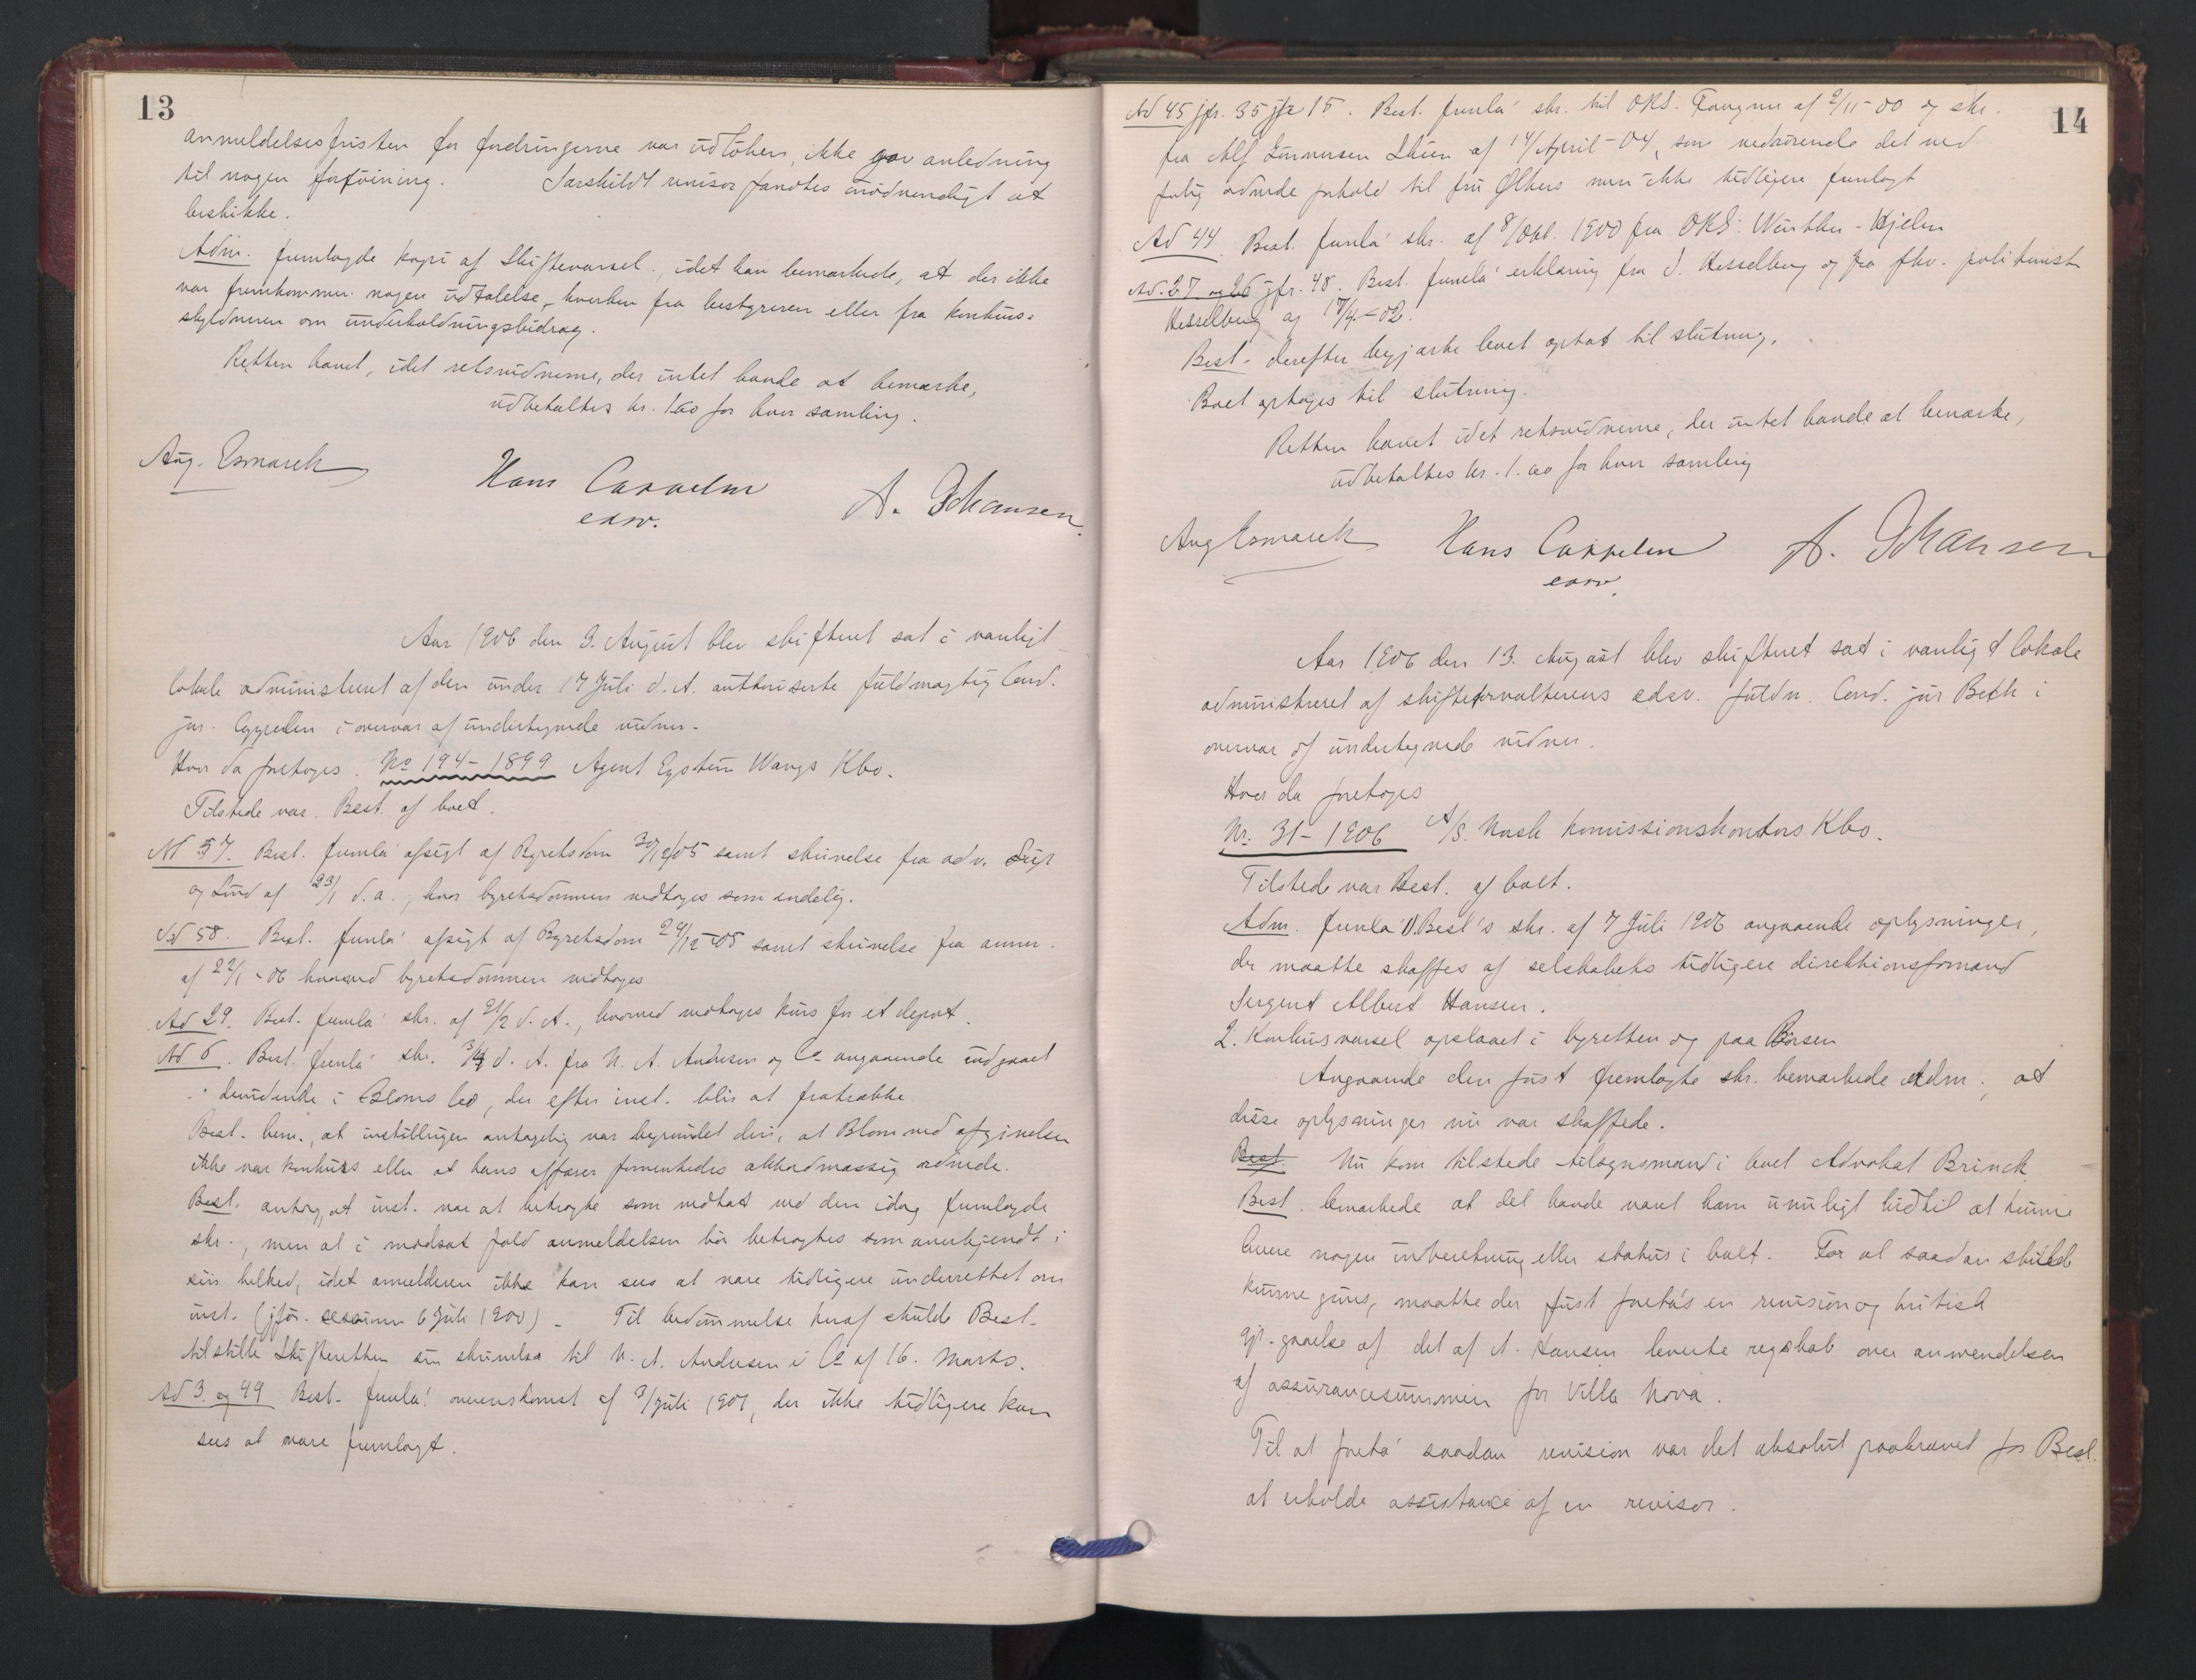 13
anmeldelsesfristen for fordringerne var udløben, ikke gav anledning
til nogen forføining. Særskildt revisor fandtes unødvendigt at
beskikke.
Adm. fremlagde kopi af Skiftevarsel, idet han bemærkede, at der ikke
var fremkommen nogen udtalelse, hverken fra bestyreren eller fra konkurs-
skyldneren om underholdningsbidrag.
Retten hævet, idet retsvidnerne, der intet havde at bemærke,
udbetaltes kr. 1.00 for hver samling.
Aug. Esmarch Hans Cappelen A. Johansen
edsv.
Aar 1906 den 9. August blev skifteret sat i vanligt
lokale administreret af den under 17 Juli d. A. authoriserte fuldmægtig Cand.
jur. i overvær af undertegnede vidner.
Hvor da foretoges. No 194-1899 Agent Eystein Wangs Kbo.
Tilstede var. Best. af boet.
Ad 57. Best. fremla' afsigt af Byretsdom 30/12 05 samt skrivelse fra adv.
og Lund af 23/1 d. a., hvor byretsdommen vedtoges som endelig.
Ad 58. Best. fremla' afsigt af Byretsdom 29/12-05 samt skrivelse fra anm.
af 22/1-06 hvorved byretsdommen vedtoges
Ad 29. Best. fremla' skr. af 21/2 d. A., hvorved vedtoges kurs for et depot.
Ad 6. Best. fremla' skr. d. A. fra N. A. Andresen og Co angaaende indgaaet
dividende i Bloms bo, der efter inst. blir at fratrække.
Best. bem., at instillingen antagelig var begrundet deri, at Blom ved afgivelsen
ikke var konkurs eller at hans affærer formentedes akkordmæssig ordnede.
Best. antog, at inst. var at betragte som vedtat ved den idag fremlagde
skr., men at i modsat fald anmeldelsen bør betragtes som anerkjendt i
sin helhed, idet anmelderen ikke kan sees at være tidligere underrettet om
inst. (jfør. sessionen 6 Juli 1900). Til bedømmelse heraf skulde Best.
tilstille Skifteretten sin skrivelse til N. A. Andresen & Co af 16. Marts.
Ad 3. og 49 Best. fremla' overenskomst af 3/Juli 1901, der ikke tidligere kan
sees at være fremlagt.
14
Ad 45 jfr. 35 jfr 15. Best. fremla' skr. til ORS. Fougner af 2/11-00 og skr.
fra Alf Skien af 14/April-04, som vedrørende det ved
forlig ordnede forhold til fru Ølhus men ikke tidligere fremlagt
Ad 44. Best. fremla' skr. af 8/Okt. 1900 fra ORS: Winther-Hjelm
Ad. 27 og 26 jfr. 48. Best. fremla' erklæring fra J. Hesselberg og fra fhv. politimest
Hesselberg af 17/4-02.
Best. derefter begjærte boet optat til slutning.
Boet optoges til slutning.
Retten hævet idet retsvidnerne, der intet havde at bemærke,
udbetaltes kr. 1.00 for hver samling
Aug Esmarch Hans Cappelen A. Johansen
edsv.
Aar 1906 den 13. August blev skifteret sat i vanligt lokale
administreret af skifteforvalterens edsv. fuldm. Cand. jur Bech i
overvær af undertegnede vidner.
Hvor da foretoges
Nr. 31-1906 A/S. Norsk Komissionskontors Kbo.
Tilstede var Best. af boet.
Adm. fremla' 1) Best's skr. af 7 Juli 1906 angaaende oplysninger,
der maatte skaffes af selskabets tidligere direktionsformand
Sergent Albert Hansen.
2. Konkursvarsel opslaaet i byretten og paa Børsen
Angaaende den først fremlagte skr. bemærkede Adm., at
disse oplysninger nu var skaffede.
Best. Nu kom tilstede tilsynsmand i boet Advokat Brinck
Best. bemærkede at det havde været ham umuligt hidtil at kunne
levere nogen indberetning eller status i boet. For at saadan skulde
kunne gives, maatte der først foreta's en revision og kritisk
gj.gaaelse af det af A. Hansen leverte regskab over anvendelsen
af assurancesummen for Villa Nova.
Til at foreta' saadan revision var det absolut paakrævet for Best.
at erholde assistance af en revisor.